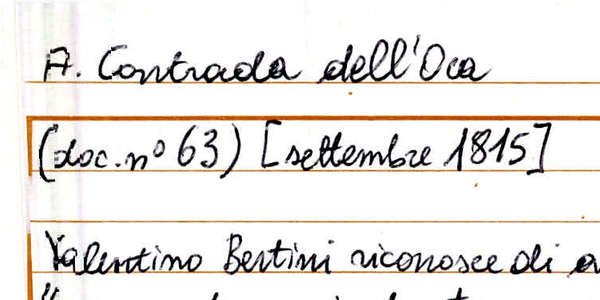 A. Contrada dell'Oca
(doc. nº 63) [settembre 1815]
Valentino Bertini riconosce di